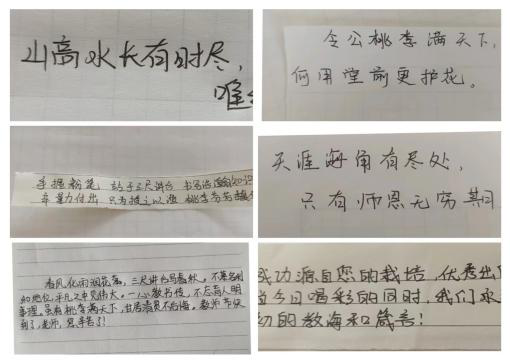 山高水长有时尽,
唯
令公桃李满天下,
何用堂前更护花。
手握粉笔 站于三尺讲台 书写
辛勤付出 只为授之以渔 桃李芬芳
天涯海角有尽处,
只有师恩无穷期
春风化雨润花蕾,三尺讲台写春秋。不慕名利
和地位,平凡之中见伟大。一心教书传,不忘育人明
事理。虽有桃李满天下,甘居清贫不后悔。教师节快
到了,老师,您辛苦了!
成功源自您的栽培,优秀出
当今日喝彩的同时,我们永
切的教海和箴言!